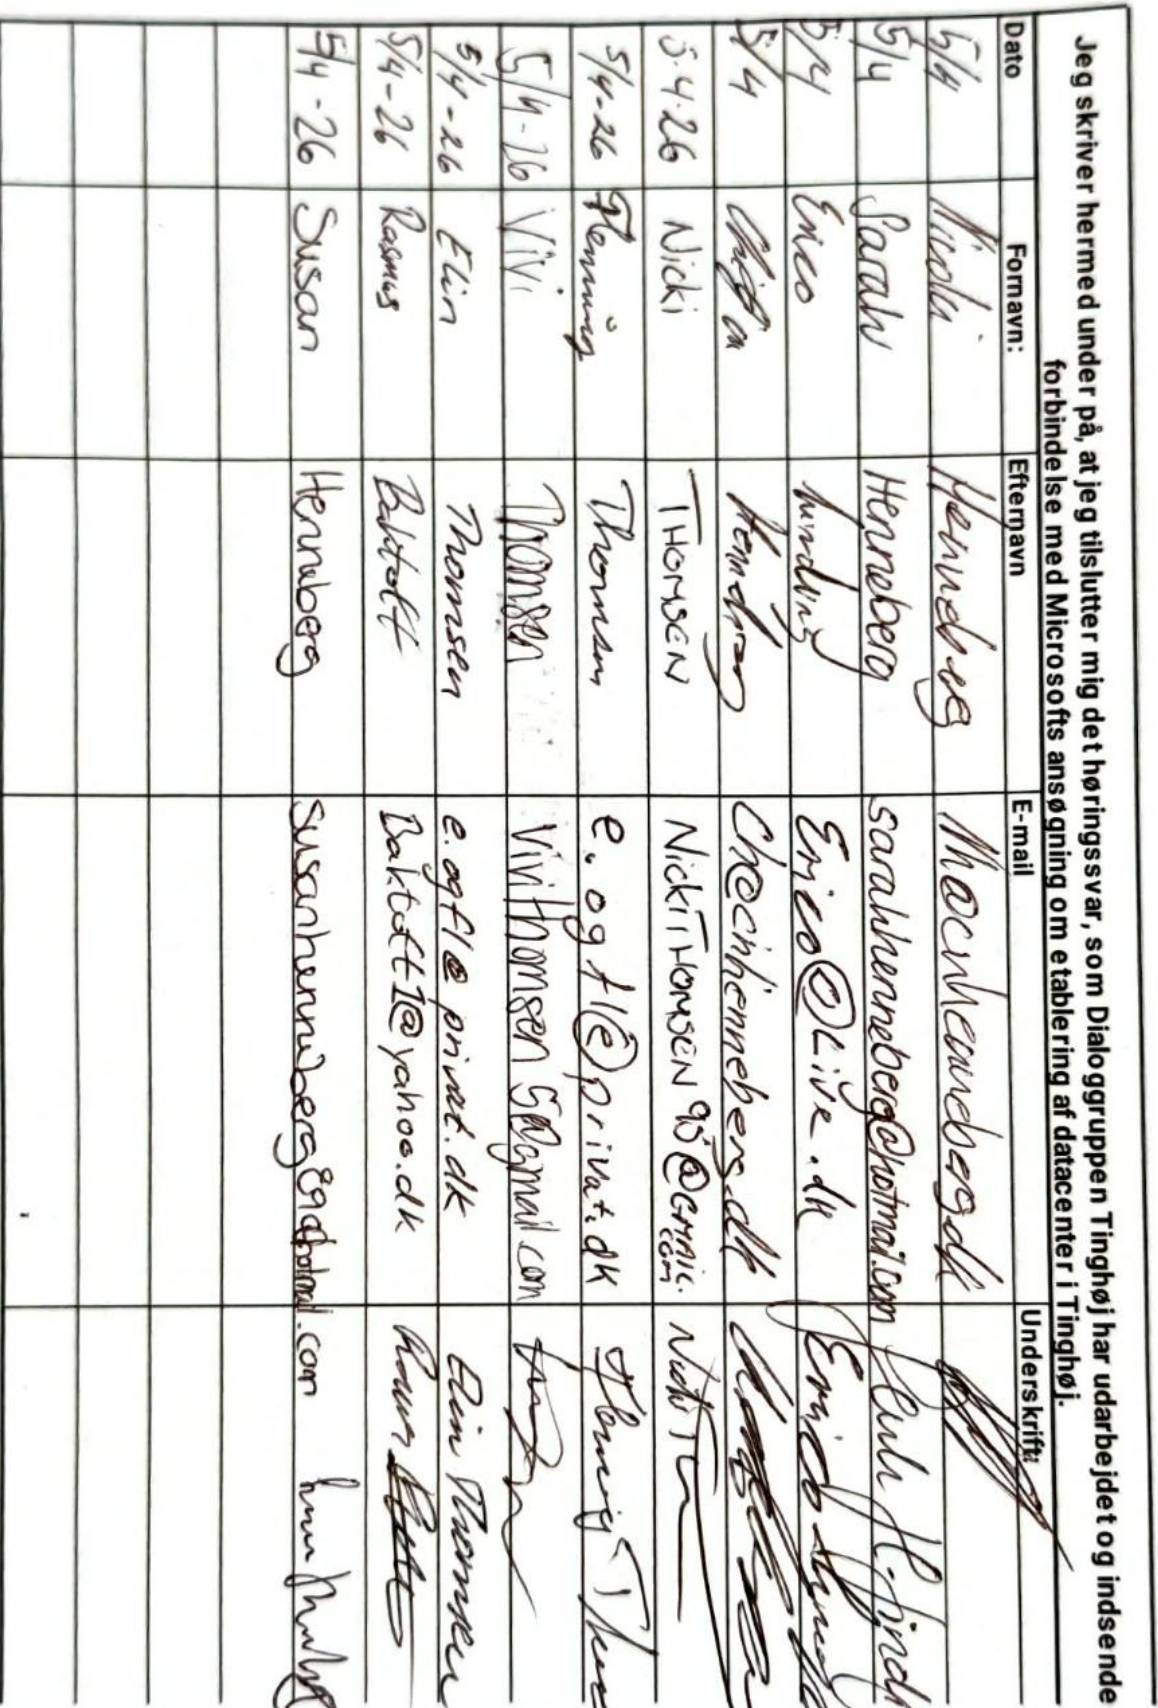 Jeg skriver hermed under på, at jeg tilslutter mig det høringssvar, som Dialoggruppen Tinghøj har udarbejdet og indsende
forbindelse med Microsofts ansøgning om etablering af datacenter i Tinghøj.
Dato Fornavn: Efternavn E-mail Underskrift:
5/4 Nicolai Henneberg
5/4 Sarah Henneberg sarahhenneberg@hotmail.com
5/4 Enico Enico@Live.dk Enico
5/4 Ch@chhenneberg.dk
5.4.26 Nicki THOMSEN NICKITHOMSEN95@GMAIL.com
5/4-26 Flemming Thomsen e.ogfl@privat.dk Flemming
5/4-26 Vivi Thomsen
5/4-26 Elin Thomsen e.ogfl@privat.dk Elin Thomsen
5/4-26 Rasmus Baktoft Baktoft1@yahoo.dk
5/4-26 Susan Henneberg